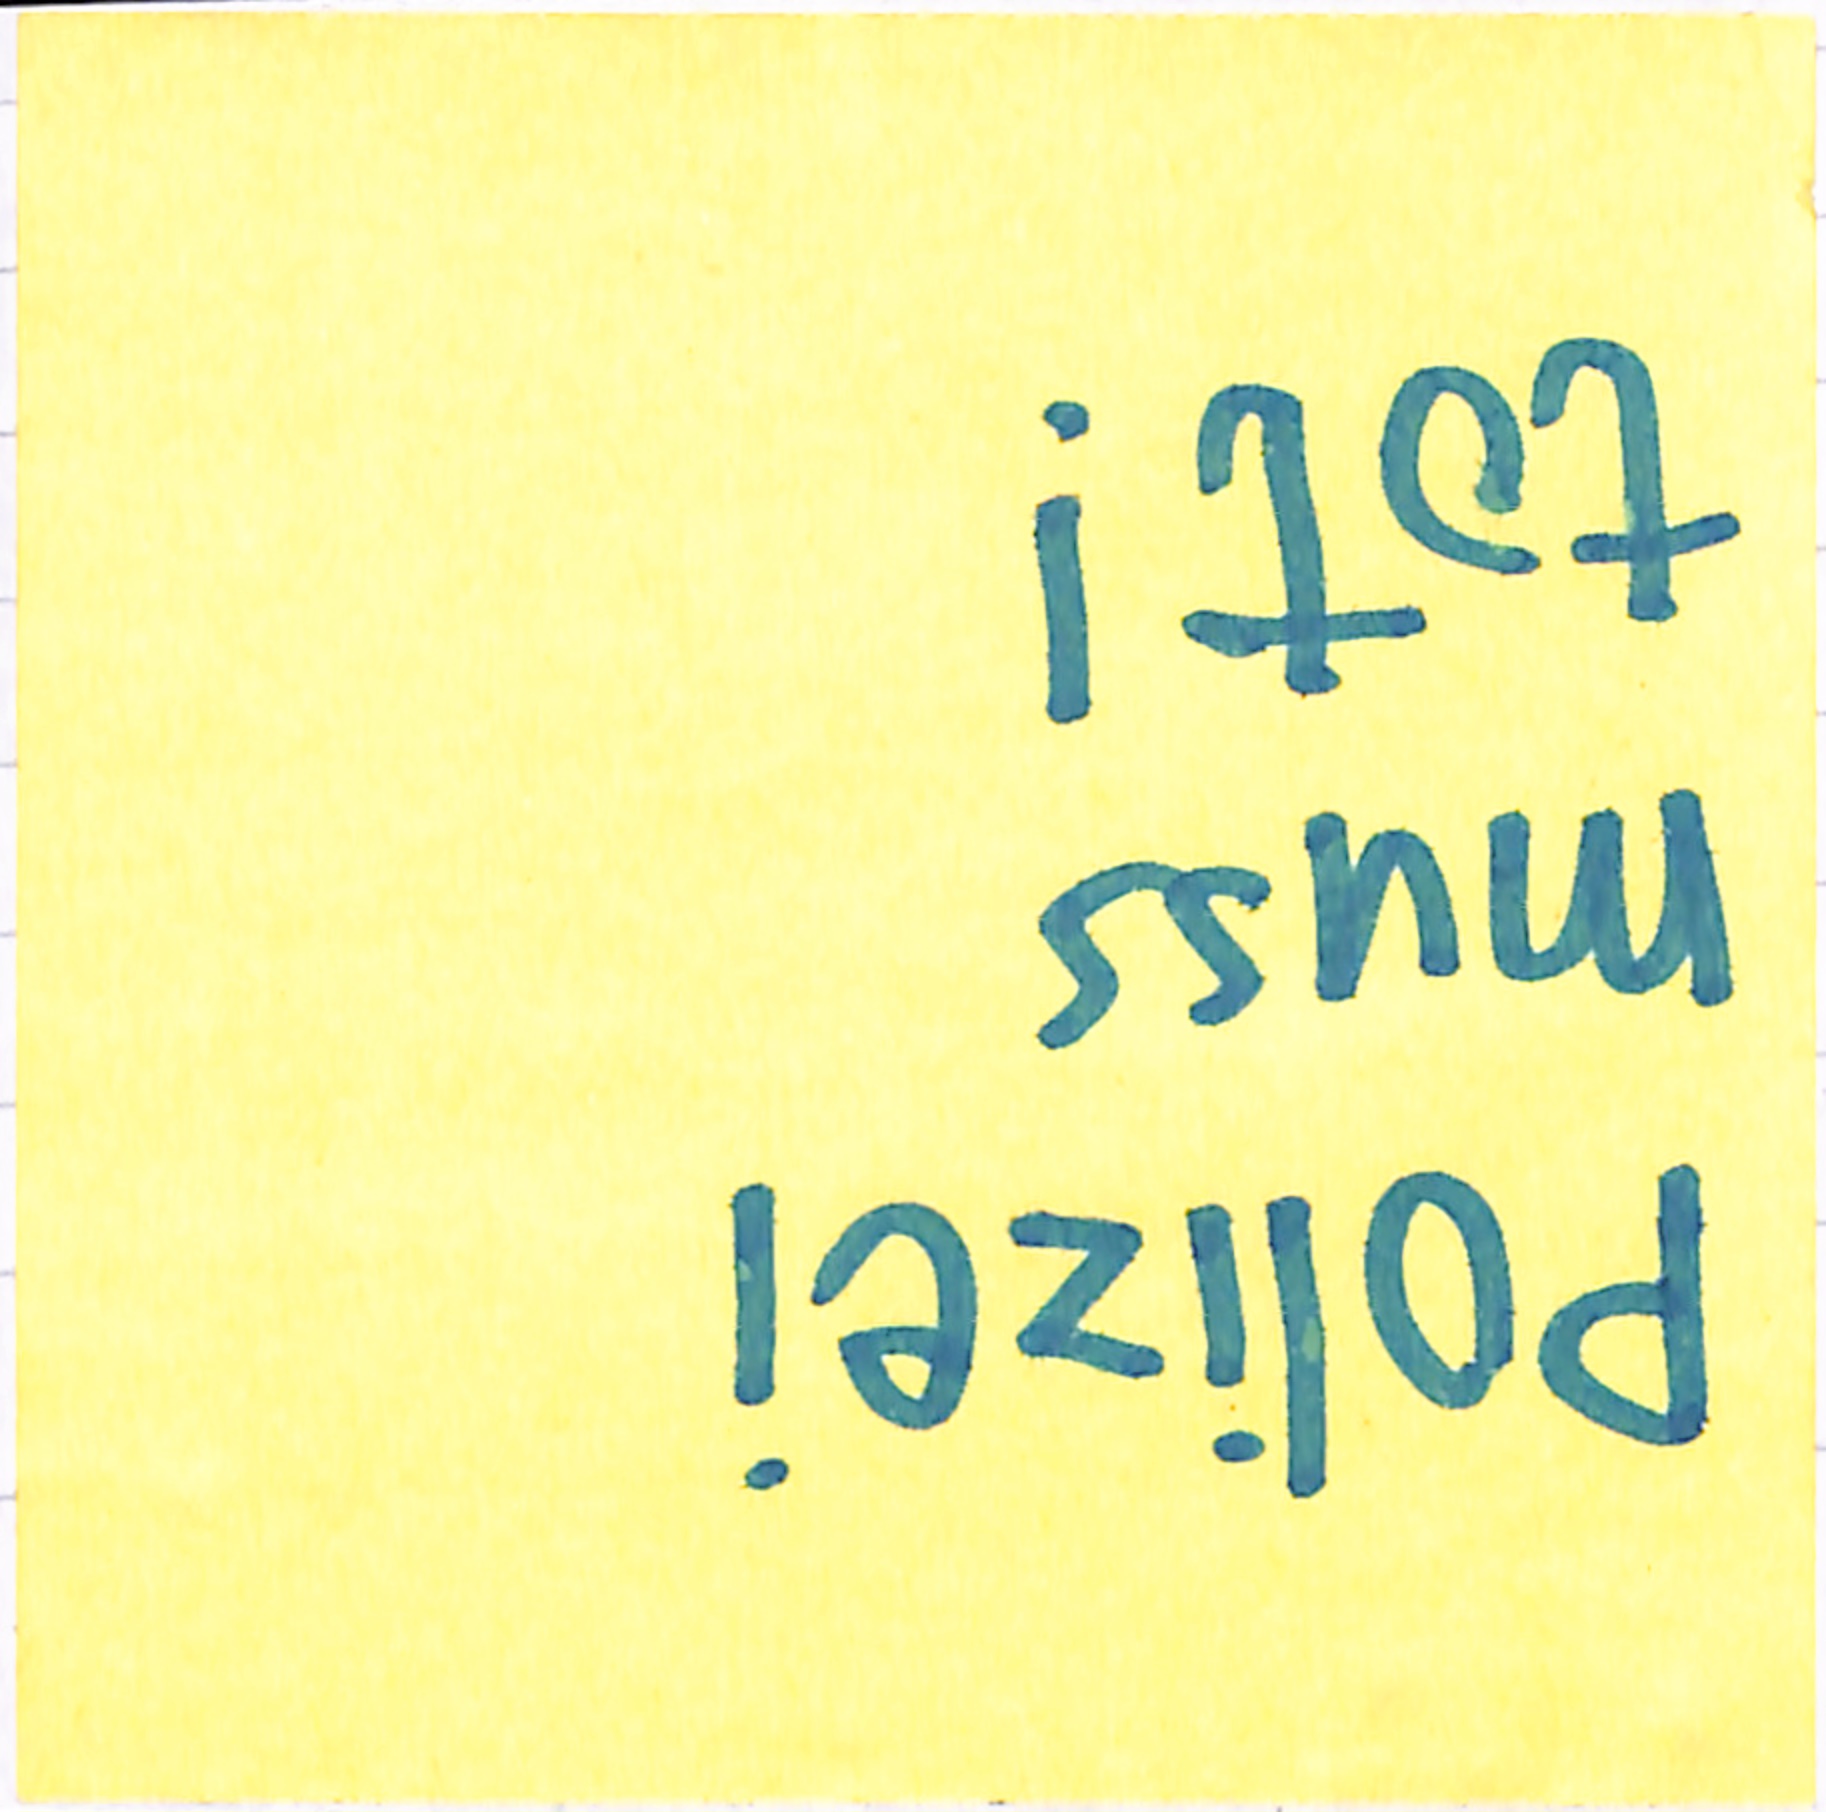 Polizei
muss
tot!